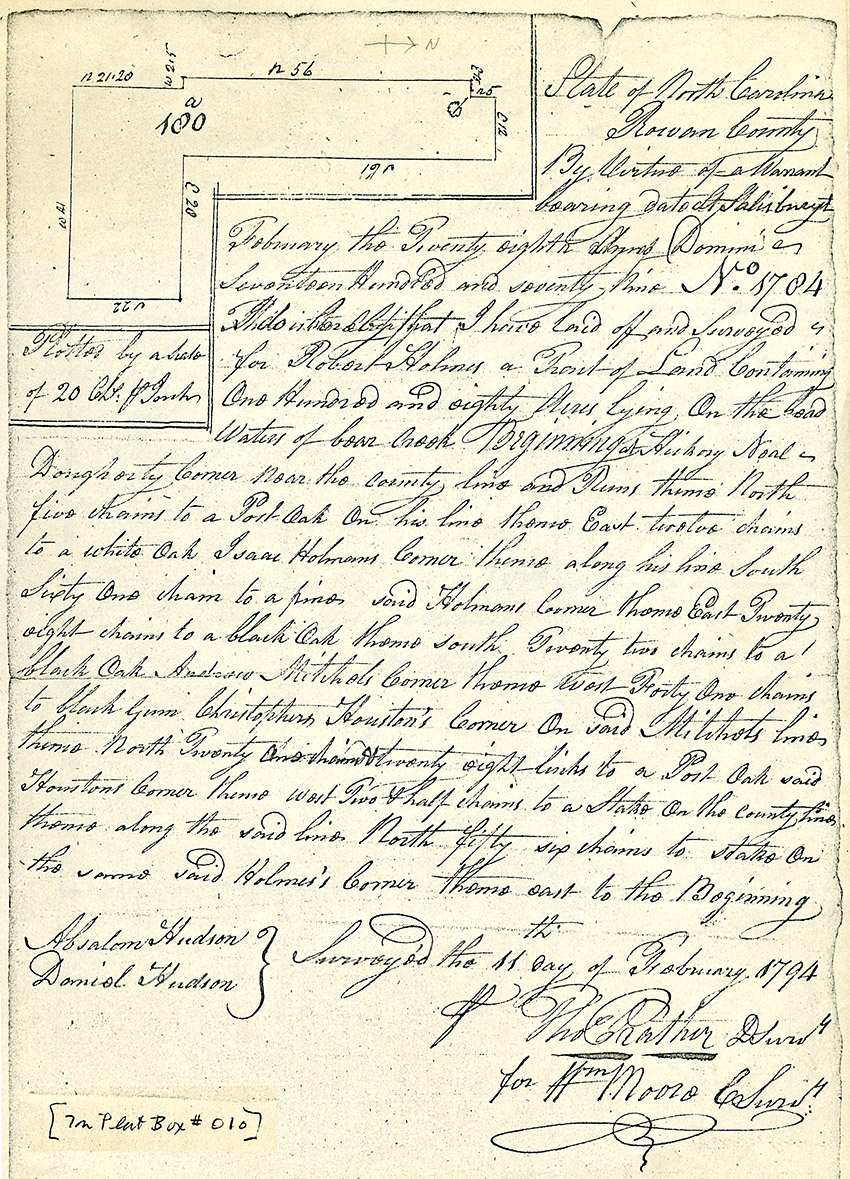 N
n 21.20
w 2.5
n 56
E4
n5
a
180
B
E 12
s 61
w 41
E 28
s 22
Plotted by a Scale
of 20 Chs. ⅌ Inch
State of North Carolina
Rowan County
By Virtue of a Warrant
bearing date at Salisbury
February the Twenty eighth Anno Domini
Seventeen Hundred and seventy Nine No. 1784
I do certify that I have laid off and Surveyed
for Robert Holmes a Tract of Land Containing
One Hundred and eighty Acres lying On the head
Waters of bear Creek Beginning at Hickory Neal
Dougherty Corner Near the county line and Runs thence North
five chains to a Post Oak On his line thence East twelve chains
to a white Oak Isaac Holmans Corner thence along his line South
Sixty One chain to a pine said Holmans Corner thence East Twenty
eight chains to a black Oak thence south Twenty two chains to a
black Oak Andrew Mitchels Corner thence West Forty One chains
to black Gum Christophers Houston's Corner On said Mitchels line
thence North Twenty One chain & twenty eight links to a Post Oak said
Houstons Corner thence west Two & half chains to a Stake On the county line
thence along the said line North fifty six chains to stake On
the same said Holmes's Corner thence east to the Beginning
Absalom Hudson
Daniel Hudson
Survey'd the 11th day of February 1794
⅌ Tho Prather DSurvr
for Wm Moore CSurvr
[In Plat Box # 010]